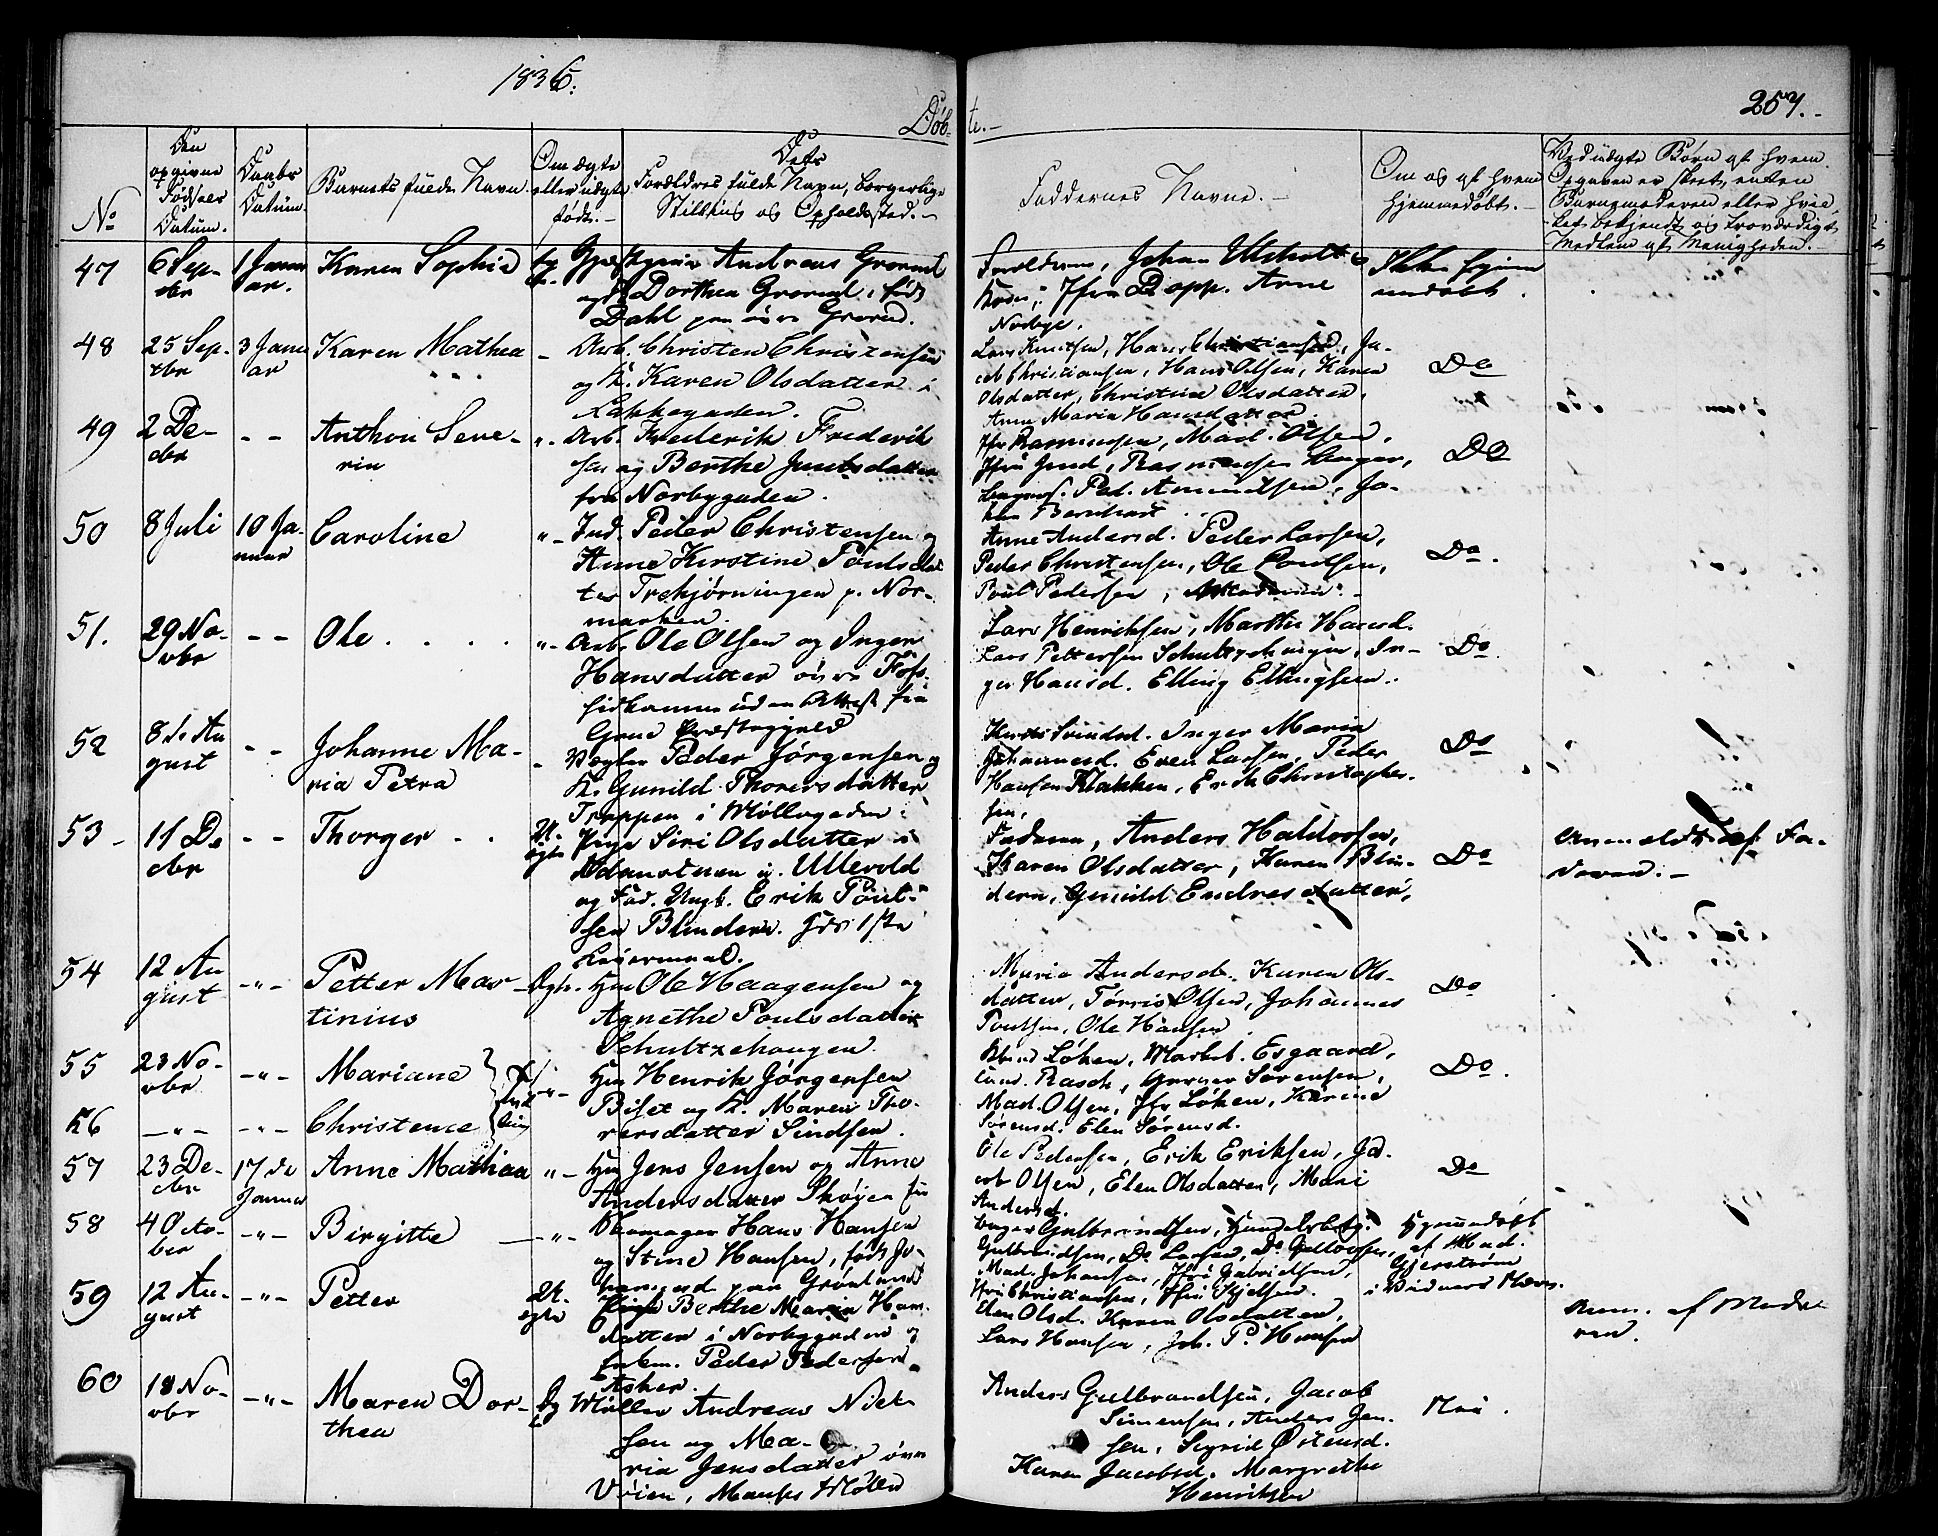 1836.
257.
Døb-
te.-
No
Den opgivne Fødsels Datum.
Daabs Datum.
Barnets fulde Navn.
Om ægte eller uægte født.-
Dets Forældres fulde Navn, borgerlige Stilling og Opholdssted.-
Faddernes Navne.-
Om og af hvem hjemmedøbt.-
Ved uægte Børn af hvem Opgaven er skeet, enten Barnemoderen eller
bekjendt og troværdigt Medlem af Menigheden.-
47
6 Sep-
tbr
1 Janu
ar.
Karen Sophie
Andreas Grorud
og Dorthea Grorud, født
Dahl paa øvre Grorud.
Forældrene, Johan Ulsholt
Jfru Dopp. Arne
Norbye.
Ikke hjem
medøbt.
48
25 Sep-
tbr
3 Janu
ar
Karen Mathea
Arb. Christen Christensen
og K. Karen Olsdatter i
Lakkegaden.
Lars Knutsen, Hans Christiansen, Ja-
cob Christiansen, Hans Olsen, Karen
Olsdatter, Christine Olsdatter,
Anne Maria Hansdatter.
Do
49
2 De-
cbr
- -
Anthon Seve-
rin
Arb. Frederik Frederik
sen og Berthe Juulsdatter
fra Norbygaden.
Jfr Rasmussen, Mad. Olsen,
Ped. Amundsen, Jo-
han Bernhart
Do
50
8 Juli
10 Ja-
nuar
Caroline
Ind. Peder Christensen og
Anne Kirstine Poulsdat
ter Trekjørningen p. Nor-
marken.
Anne Andersd. Peder Larsen,
Peder Christensen, Ole Poulsen,
Poul Pedersen,
Do.
51.
29 No-
vbr
- -
Ole
Arb. Ole Olsen og Inger
Hansdatter øvre Fos-
uden Attest fra
Grue Præstegjeld
Lars Henriksen, Marthe Hansd.
Lars Pettersen Schultzehaugen, In-
ger Hansd. Elling Ellingsen.
Do
52
8de Au
gust
- -
Johanne Ma-
ria Petra
Vægter Peder Jørgensen og
K. Gunild Thorersdatter
Trappen i Møllegaden.
Svendsd. Inger Maria
Johannesd. Even Larsen, Peder
Hansen Klakken, Erik Christophers-
sen,
Do
53-
11 De
cbr
- -
Thorger
U-
ægte
Pige Siri Olsdatter
Ullevold
og Fad. Ungk. Erik Poul-
sen Blindern. Hds 1ste
Leiermaal.
Faderen, Anders Haldorsen,
Karen Olsdatter, Karen Blin-
dern, Gunild Endresdatter,
Do
Anmeldt af Fa-
deren.-
54
12 Au
gust
-"-
Petter Mar-
tinius
Ægte.
Hm Ole Haagensen og
Agnethe Poulsdatter
Schultzehaugen.
Maria Andersd. Karen Ols-
datter, Tørris Olsen, Johannes
Poulsen, Ole Hansen
Do
55
23 No-
vbr
-"-
Mariane
Hm Henrik Jørgensen
Biset og K. Maren Tho-
rersdatter Sindsen.
Løken, Esgaard,
Rasch, Sørensen,
Mad. Olsen, Jfr Løken, Karine
Sørensd. Elen Sørensd.
Do.
56
-"-
-"-
Christence
57
23 De-
cbr
17 de
Januar
Anne Mathea
Hm Jens Jensen og Anne
Andersdatter Skøyen
Ole Pedersen, Erik Eriksen, Ja-
cob Olsen, Elen Olsdatter, Mari
Andersd.
Do
58
4 Octo-
ber
-"-
Birgitte
Skomager Hans Hansen
og Stine Hansen, født Jo-
hansen paa Grønland
Gulbrandsen,
Gulbrandsen, Do Larsen, Do
Mad. Johansen, Jfru Gabrielsen,
Jfru Christiansen, Jfru Kjelsen.
Hjemmedøbt
af Mad.
Gjerstrøm
i
59
12 Au-
gust
-"-
Petter
U-
ægte
Pige Berthe Maria Han-
datter i Norbygaden og
Peder Pedersen
Asker.
Elen Olsd. Karen Olsdatter,
Lars Hansen, Joh. P. Hansen
Anm. af Mode-
ren.
60
18 No-
vbr
-"-
Maren Dor-
thea
Møller Andreas Niel-
sen og Ma-
ria Jensdatter øvre
Vøien,
Anders Gulbrandsen, Jacob
Simensen, Anders Jen-
sen, Sigrid Østensd.
Karen Jacobsd. Margrethe
Henriksen
Nei.